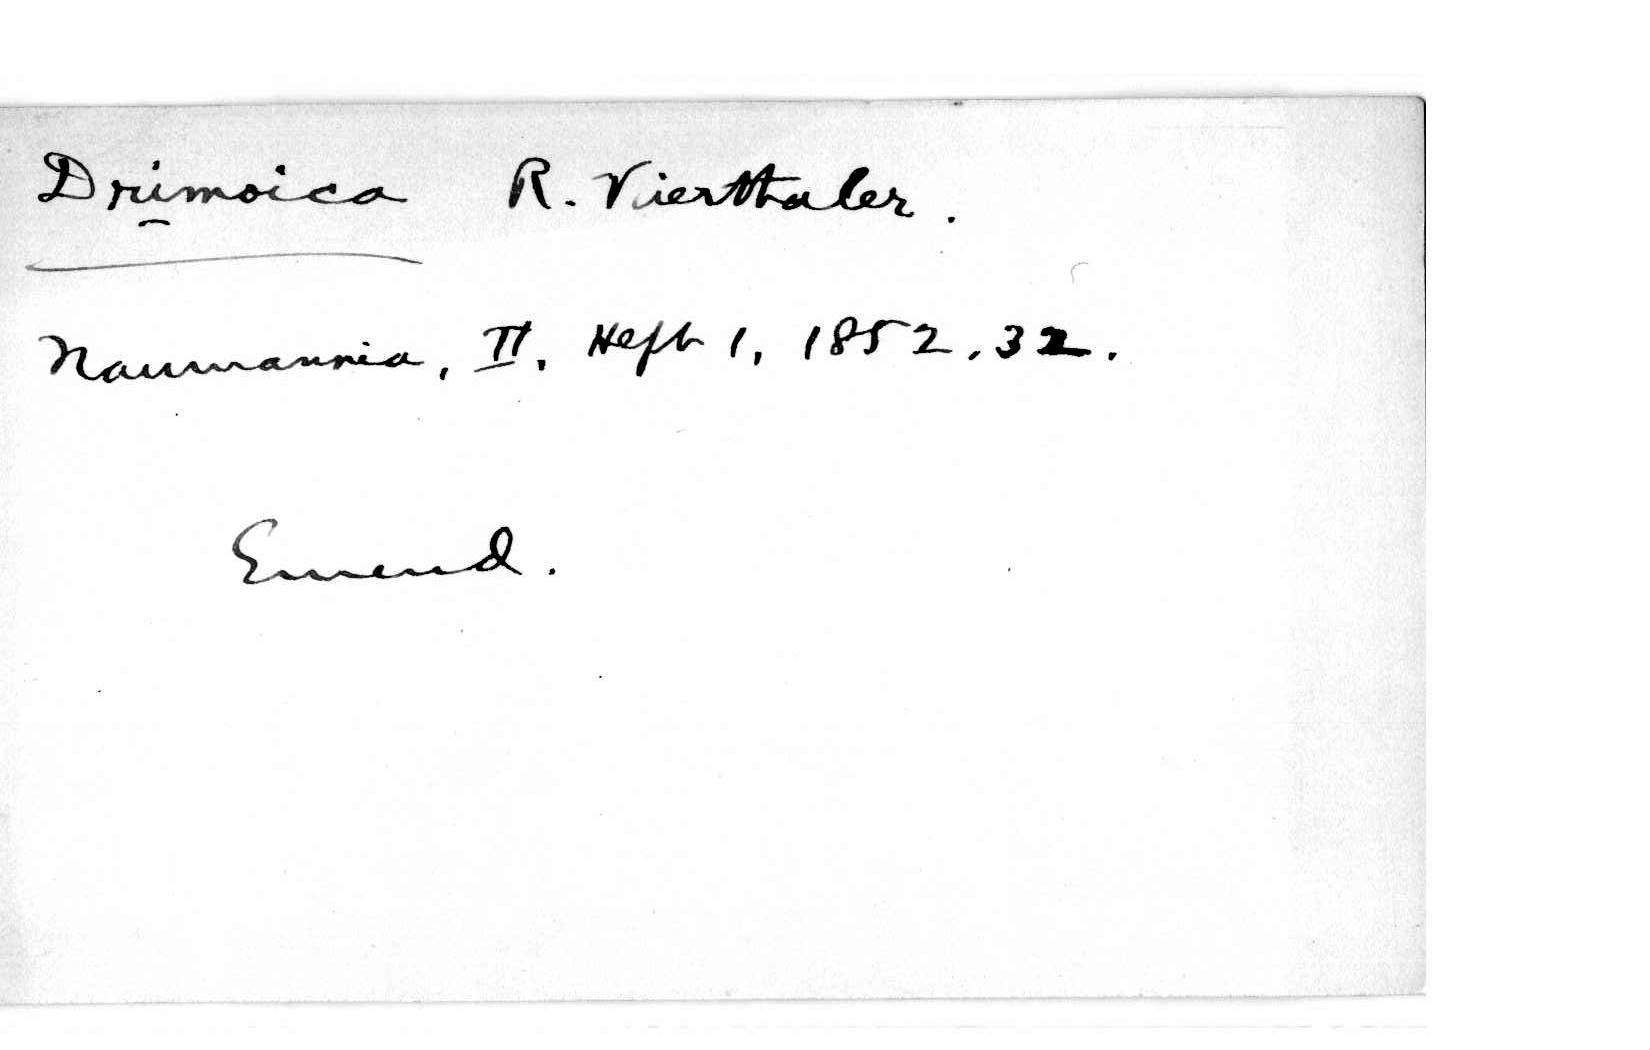 Drimoica R. Vierthaler.
Naumannia, II, Heft 1, 1852, 32.
Emend.